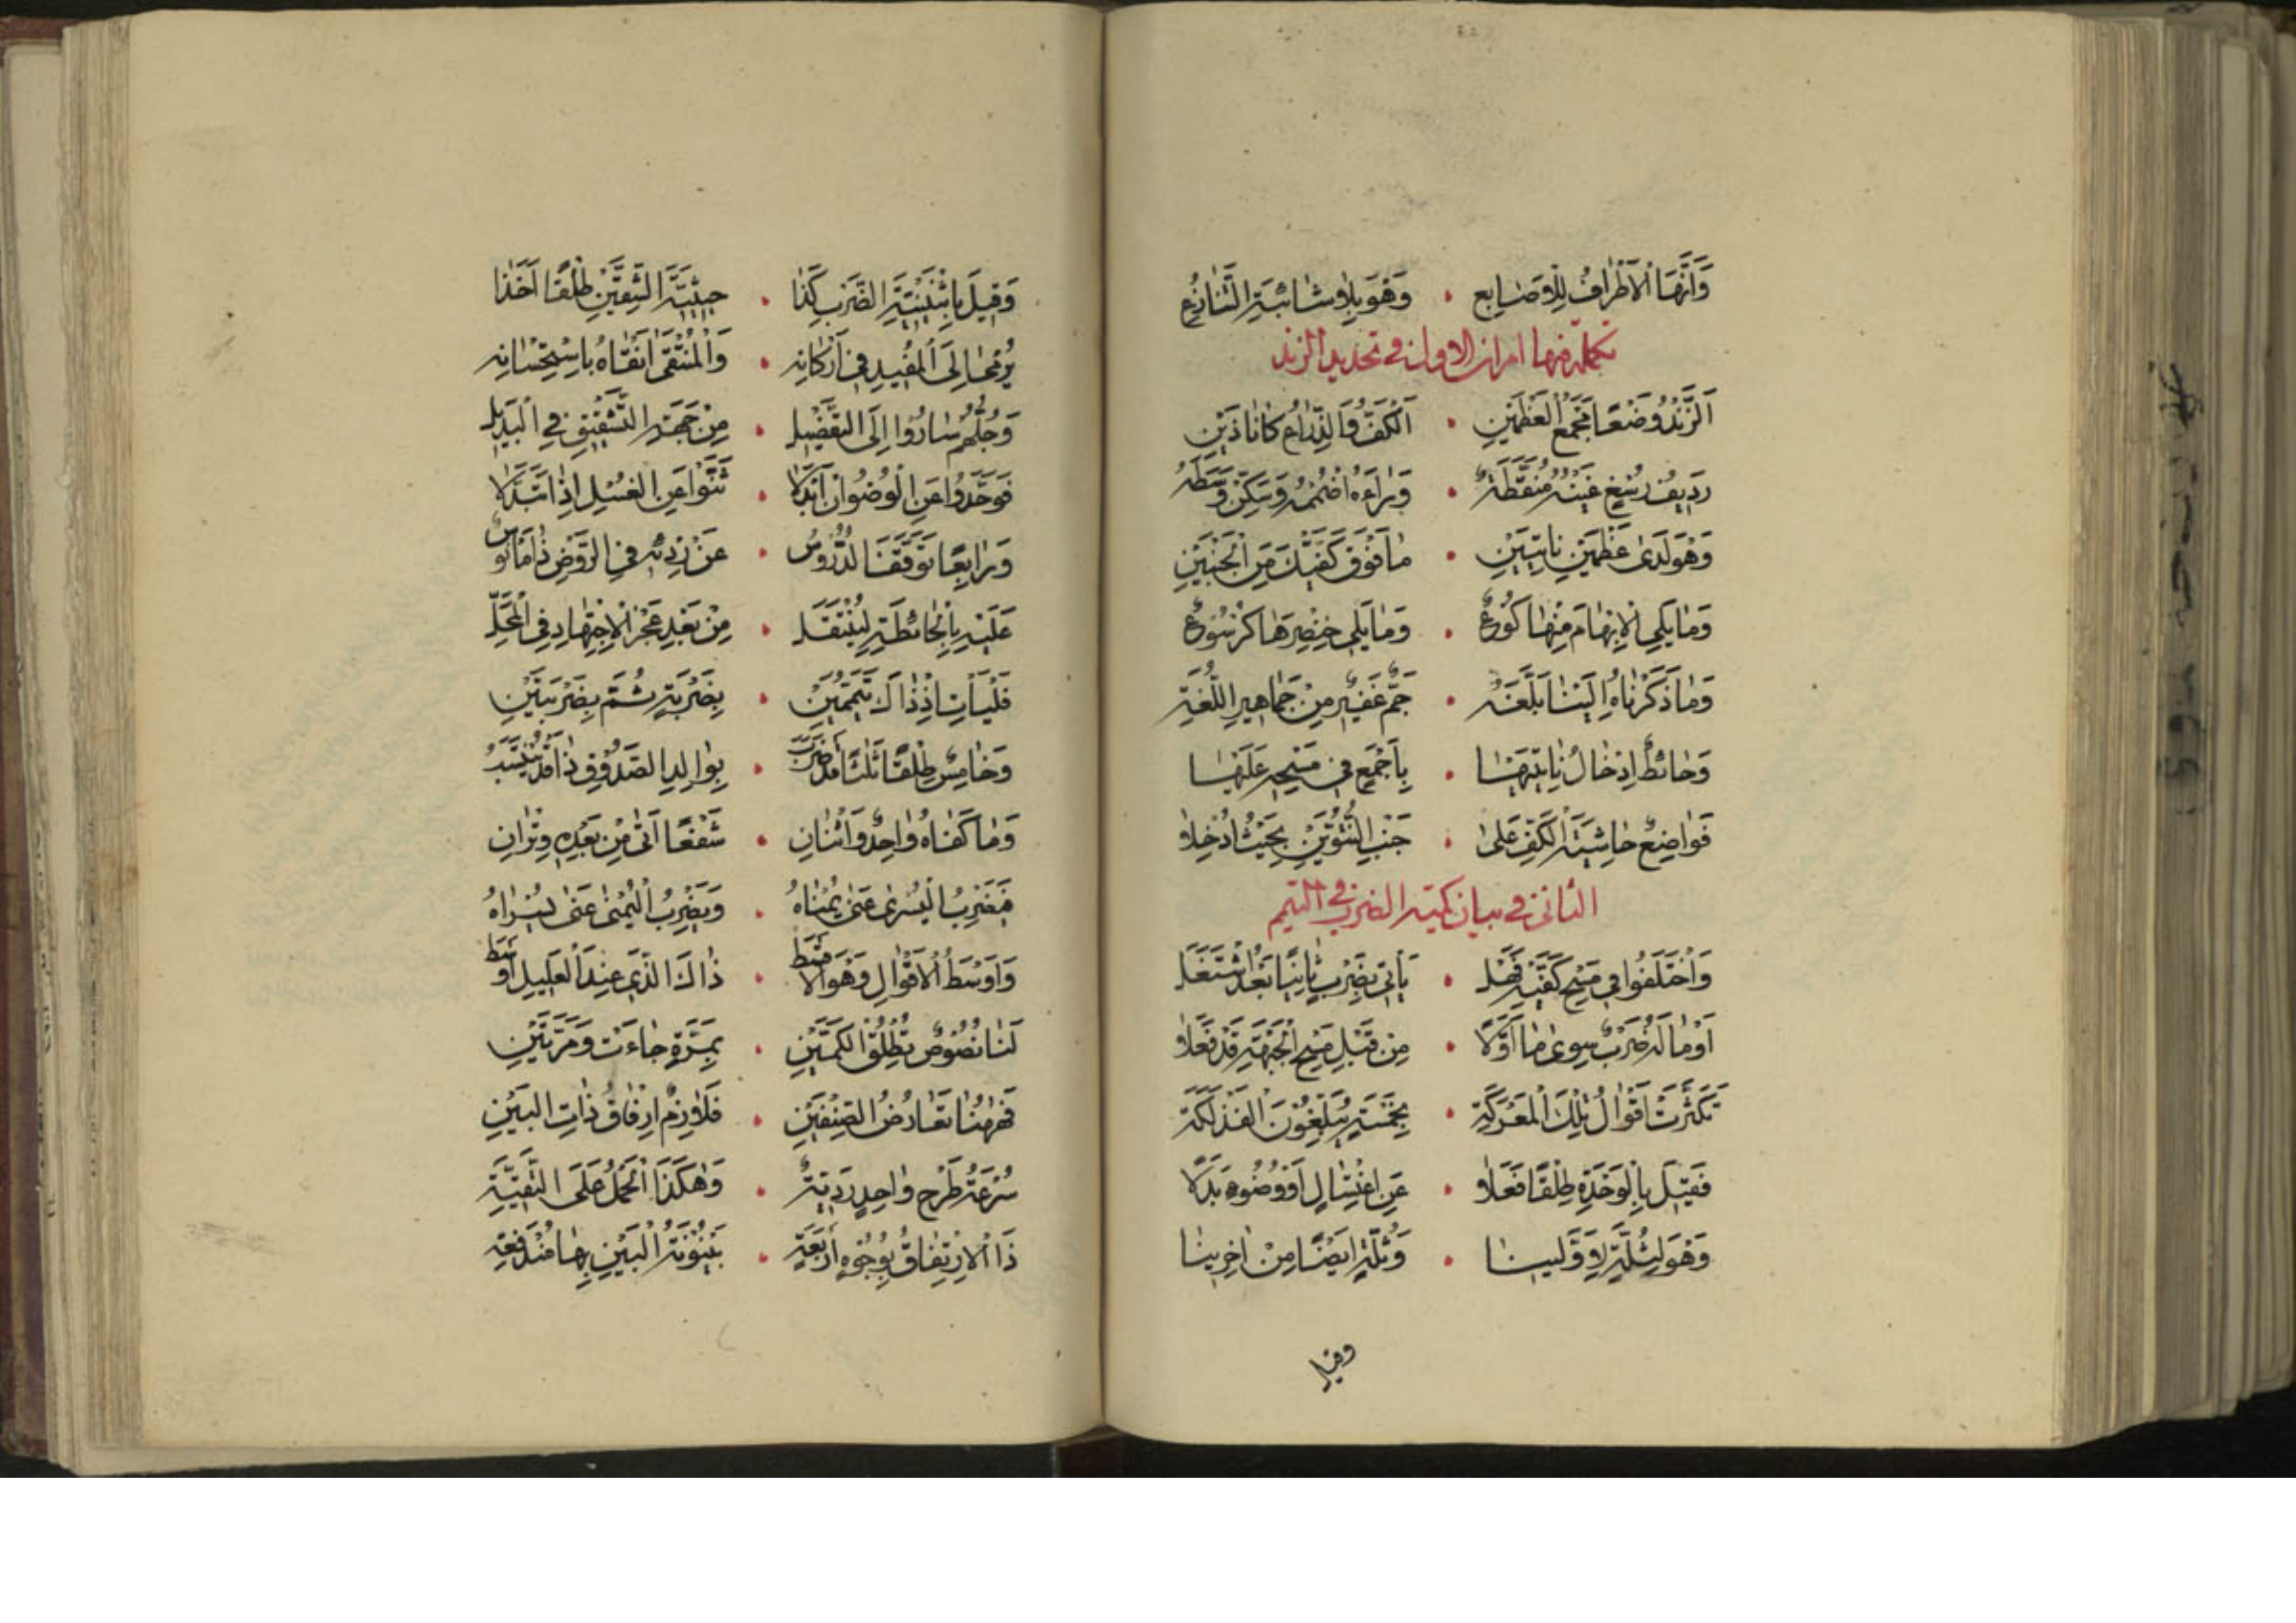 وَاَنَّهَا الْاَطْرَافُ لِلْاَصَابِعِ • وَهْوَ بِلَا شَائِبَةِ التَّنَازُعِ
تكملة فيها امران الاول في تحديد الزند
اَلزَّنْدُ وَضْعًا مَجْمَعُ الْعَظْمَيْنِ • اَلْكَفُّ وَالذِّرَاعُ كَانَا ذَيْنِ
رَدِيفُ رُسْغٍ غَيْنُهُ مُنَقَّطَةٌ • وَرَاءَهُ اضْمُمْهُ وَسَكِّنْ وَسَطَهُ
وَهْوَ لَدَى عَظْمَيْنِ نَاتِيَيْنِ • مَا فَوْقَ كَفَّيْكَ مِنَ الْجَنْبَيْنِ
وَمَا يَلِي الْاِبْهَامَ مِنْهَا كُوعٌ • وَمَا يَلِي خِنْصِرَهَا كُرْسُوعٌ
وَمَا ذَكَرْنَاهُ اِلَيْنَا بَلَّغَهُ • جَمٌّ غَفِيرٌ مِنْ جَمَاهِيرِ اللُّغَةِ
وَحَائِطٌ اِدْخَالُ نَاتِيَيْهَا • بِاَجْمَعٍ فِي مَسْحِهِ عَلَيْهَا
فَوَاضِعٌ حَاشِيَةَ الْكَفِّ عَلَى • جَنْبِ النُّتُوَّيْنِ بِحَيْثُ اُدْخِلَا
الثاني في بيان كمية الضرب في التيمم
وَاخْتَلَفُوا فِي مَسْحِ كَفَّيْهِ فَهَلْ • يَاْتِي بِضَرْبٍ ثَانِيًا بَعْدُ اشْتَغَلَ
اَوْ مَا لَهُ ضَرْبٌ سِوَى مَا اَوَّلًا • مِنْ قَبْلِ مَسْحِ الْجَبْهَةِ قَدْ فَعَلَا
تَكَثَّرَتْ اَقْوَالُ تِلْكَ الْمَعْرَكَةِ • بِخَمْسَةٍ يُبَلِّغُونَ الْفَذْلَكَةَ
فَقِيلَ بِالْوَحْدَةِ طَلْقًا فَعَلَا • عَنِ اغْتِسَالٍ اَوْ وُضُوءٍ بَدَلًا
وَهْوَ لِثُلَّةٍ لِاَوَّلِينَا • وَثُلَّةٍ اَيْضًا مِنْ اٰخِرِينَا
وقيل
وَقِيلَ بِاثْنَيْنِيَّةِ الضَّرْبِ كَذَا • حِينِيَّةَ الشِّقَّيْنِ طَلْقًا اَخَذَا
يُرْمَى اِلَى الْمُفِيدِ فِي اَرْكَانِهِ • وَالْمُنْتَقَى انْتَقَاهُ بِاسْتِحْسَانِهِ
وَجُلُّهُمْ سَارُوا اِلَى التَّفْضِيلِ • مِنْ جِهَةِ التَّشْقِيقِ فِي الْبَدِيلِ
فَوَحَّدُوا عَنِ الْوُضُوءِ اِنْ اُبْدِلَا • ثَنَّوْا عَنِ الْغُسْلِ اِذَا تَبَدَّلَا
وَرَابِعًا تَوَقَّفَ الدُّرُوسُ • عَنْ رَدِّهِ فِي الرَّوْضِ ذَا مَانُوسٌ
عَلَيْهِ بِالْحَائِطَةِ لِيُنْتَقَلْ • مِنْ بَعْدِ عَجْزِ الْاِجْتِهَادِ فِي الْمَحَلِّ
فَلْيَاْتِ اِذْ ذَاكَ تَيَمُّمَيْنِ • بِضَرْبَةٍ ثُمَّ بِضَرْبَتَيْنِ
وَخَامِسٌ طَلْقًا ثَلٰثًا قَدْ ضَرَبَ • بِوَالِدِ الصَّدُوقِ ذَا قَدْ يُنْتَسَبُ
وَمَا كَفَاهُ وَاحِدٌ وَاثْنَانِ • شَفْعًا اَتَى مِنْ بَعْدِهِ وِتْرَانِ
فَضَرْبُ الْيُسْرَى عَنَى يُمْنَاهُ • وَبِضَرْبِ الْيُمْنَى عَنَى يُسْرَاهُ
وَاَوْسَطُ الْاَقْوَالِ وَهْوَ الْاَقْسَطُ • ذَاكَ الَّذِي عِنْدَ الْعَلِيلِ اَوْسَطُ
لَنَا نُصُوصٌ تُطْلِقُ الْكَمَّيْنِ • بِمَرَّةٍ جَاءَتْ وَمَرَّتَيْنِ
فَهٰهُنَا تَعَارُضُ الصِّنْفَيْنِ • فَلَازِمٌ اِرْفَاقُ ذَاتِ الْبَيْنِ
سُرْعَةُ طَرْحِ وَاحِدٍ رَدِيَّةٌ • وَهٰكَذَا الْحَمْلُ عَلَى التَّقِيَّةِ
ذَا الْاِرْتِفَاقُ بِوُجُوهٍ اَرْبَعَةٍ • بَيْنُونَةُ الْبَيْنِ بِهَا مُنْدَفِعَةٌ